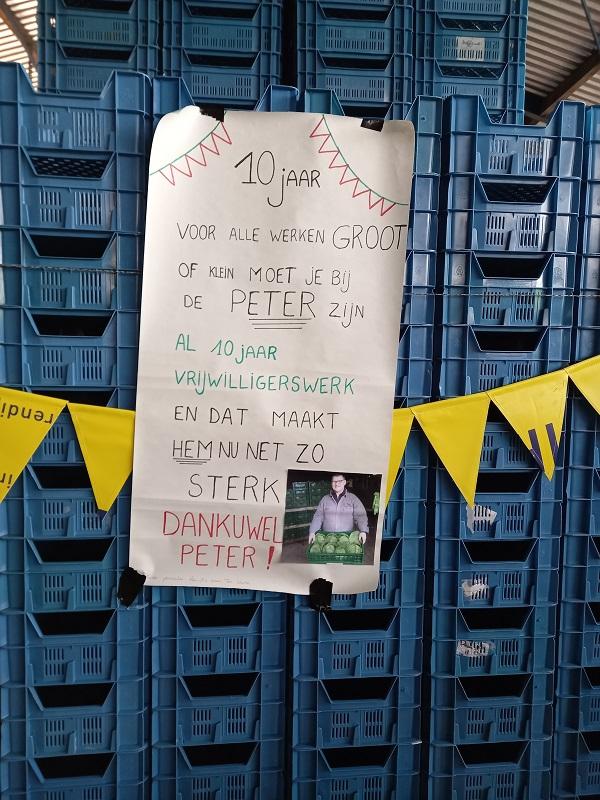 10 jaar
VOOR ALLE WERKEN GROOT
OF KLEIN MOET JE BIJ
DE PETER ZIJN
AL 10 jaar
VRIJWILLIGERSWERK
EN DAT MAAKT
HEM NU NET ZO
STERK
DANKUWEL
PETER!